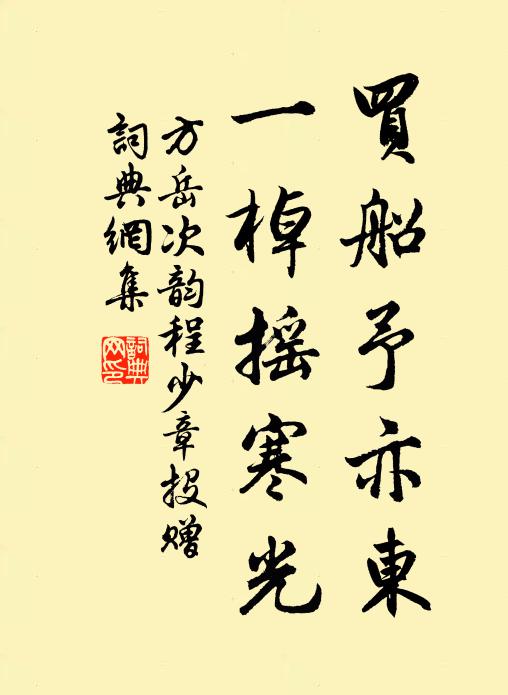 買船予亦東
一棹摇寒光
方岳次韵程少章投贈
詞典網集
詞典网印